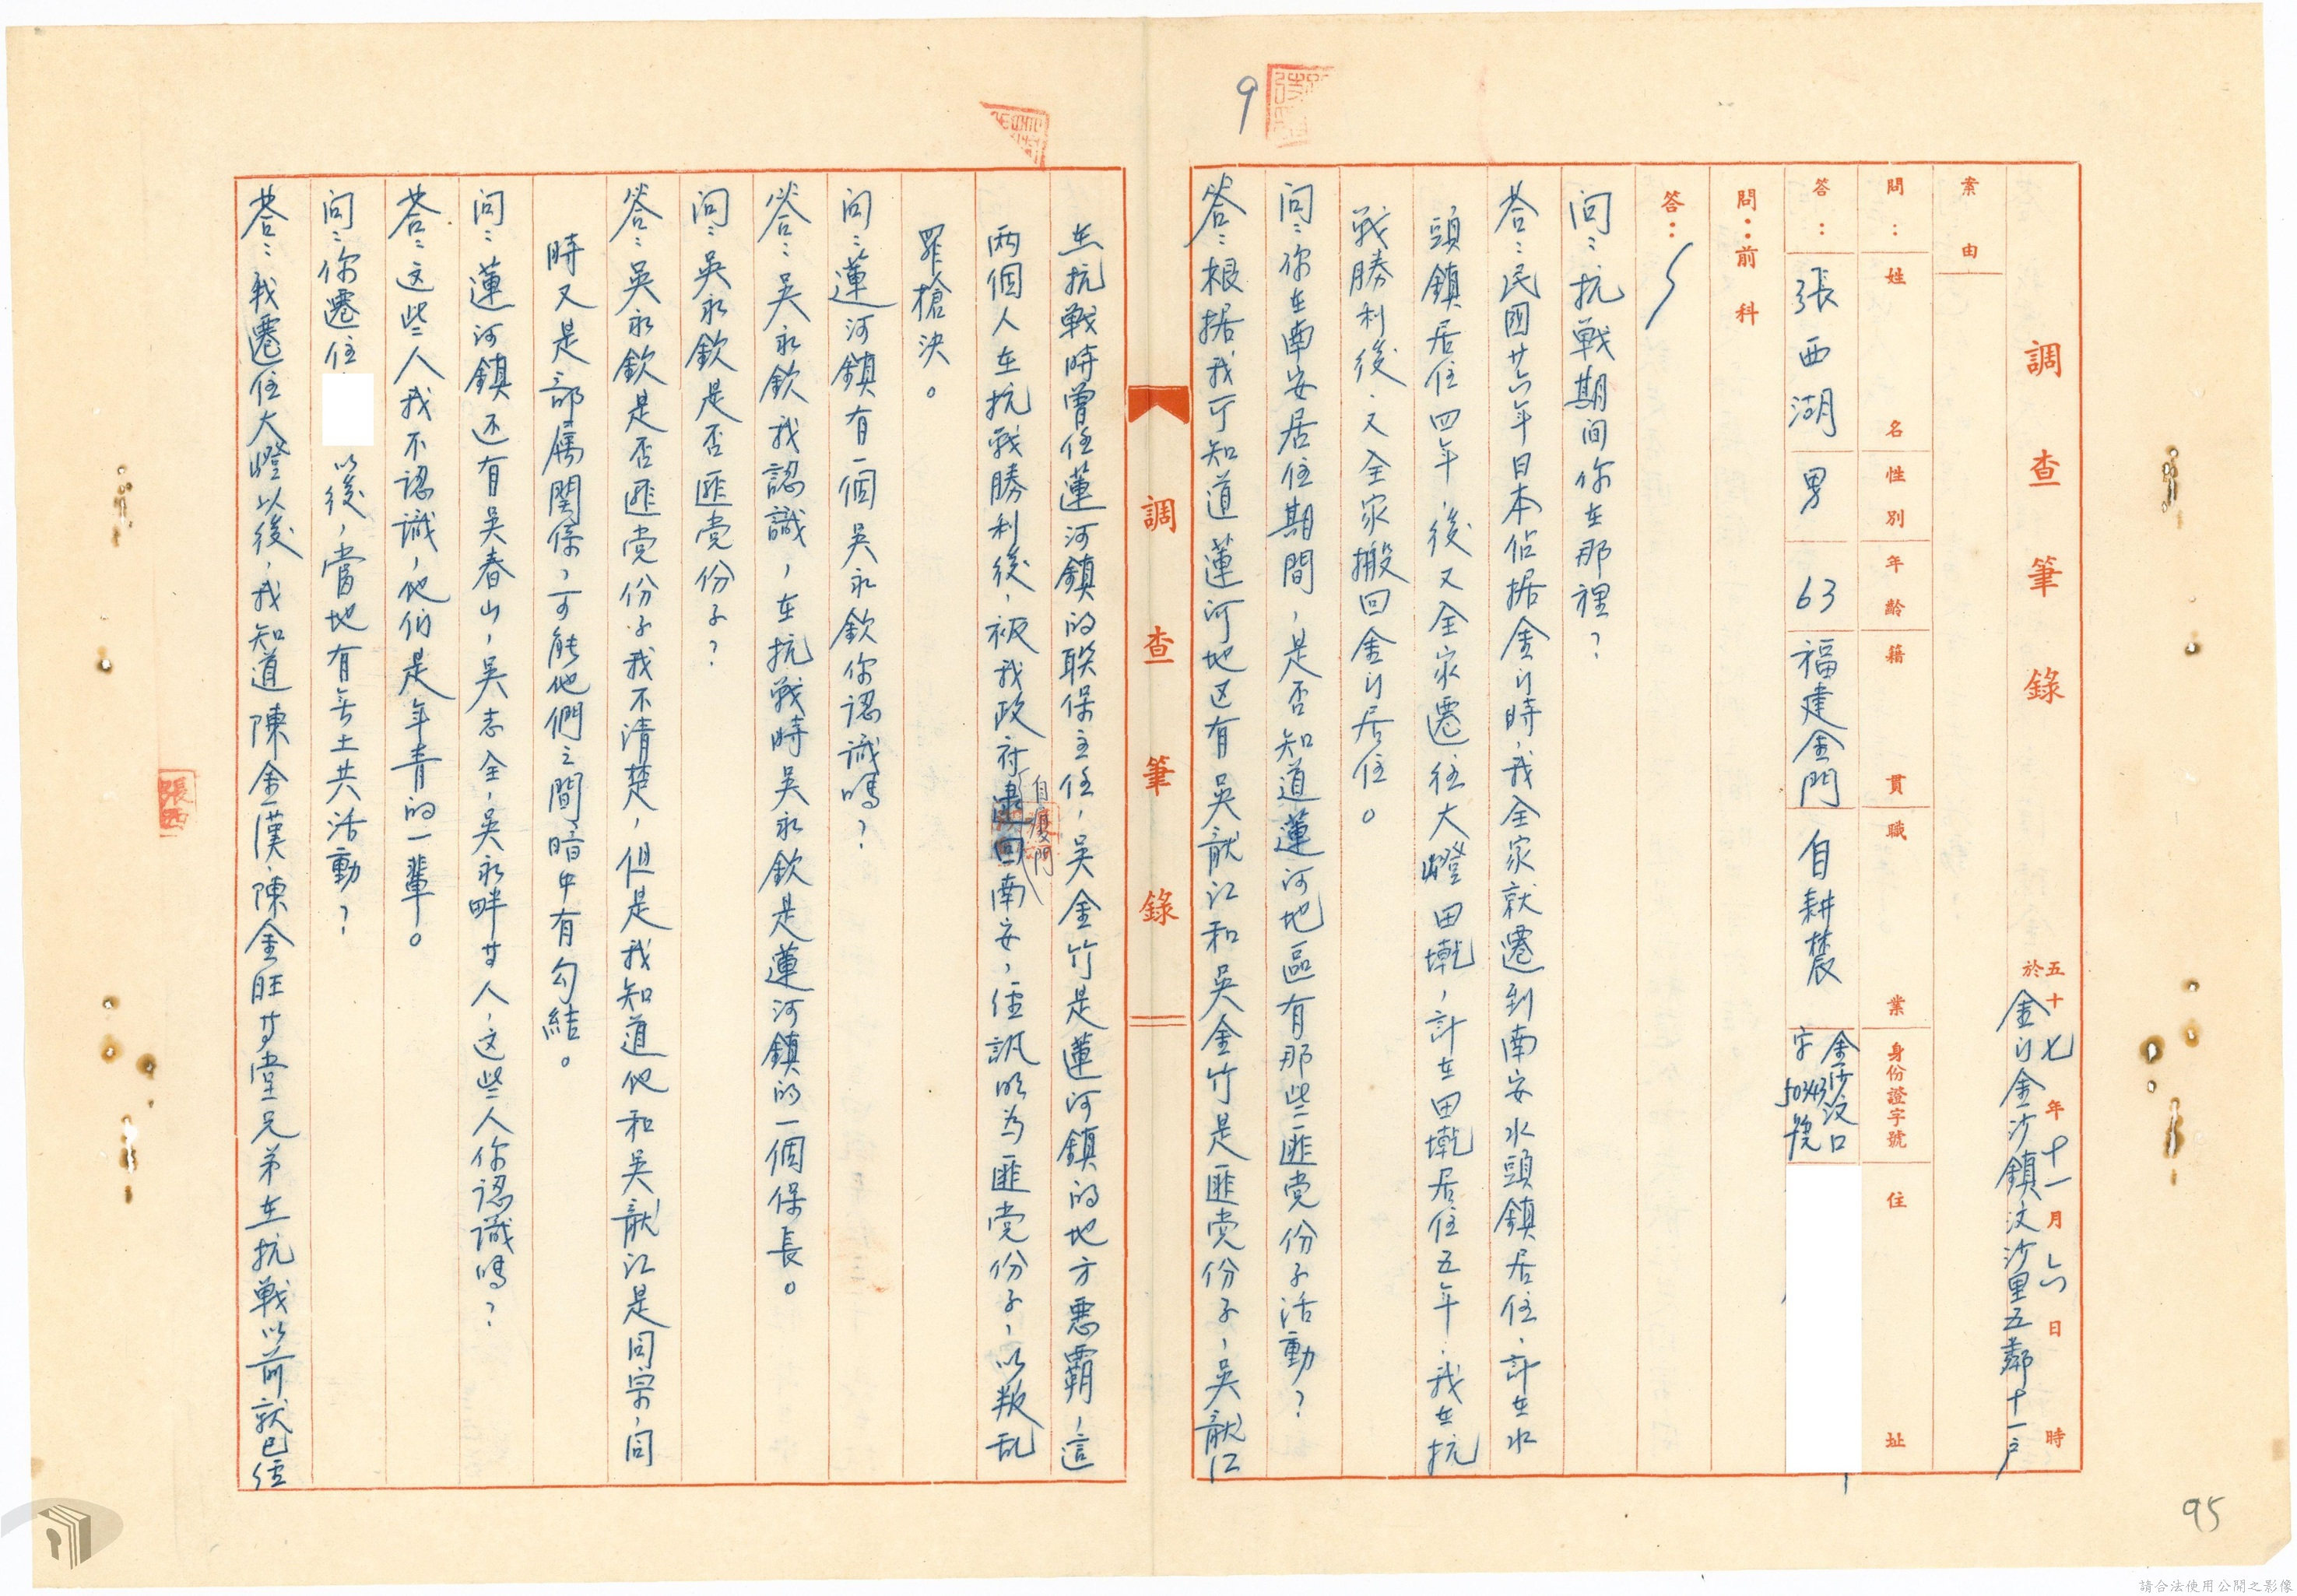 調查筆錄
五十七年十一月六日 時
於金门金沙鎮汶沙里五鄰十一戶
案由
問：姓名 性別 年齡 籍貫 職業 身份證字號 住址
答：張西湖 男 63 福建金門 自耕農 金沙汶口字50343號
問：前科
答：
问：抗戰期间你在那裡？
荅：民國廿六年日本佔据金门時，我全家就遷到南安水頭鎮居住，計在水
頭鎮居住四年，後又全家遷往大嶝田墘，計在田墘居住五年，我在抗
戰勝利後，又全家搬回金门居住。
问：你在南安居住期間，是否知道蓮河地區有那些匪党份子活動？
答：根据我可知道蓮河地区有吳猷江和吳金竹是匪党份子，吳猷江
調查筆錄
在抗戰時曾任蓮河鎮的联保主任，吳金竹是蓮河鎮的地方悪霸，這
兩個人在抗戰勝利後，被我政府自廈門逮回南安，經訊明为匪党份子，以叛乱
罪槍决。
问：蓮河鎮有一個吳永欽你認識嗎？
答：吳永欽我認識，在抗戰時吳永欽是蓮河鎮的一個保長。
问：吳永欽是否匪党份子？
答：吳永欽是否匪党份子我不清楚，但是我知道他和吳猷江是同宗，同
時又是部属関係，可能他們之間暗中有勾結。
问：蓮河鎮还有吳春山，吳志全，吳永畔廿人，这些人你認識嗎？
荅：这些人我不認識，他们是年青的一輩。
问：你遷住 以後，當地有无土共活動？
荅：我遷住大嶝以後，我知道陳金漢，陳金旺廿堂兄弟在抗戰以前就已經
9
95
張西
請合法使用公開之影像